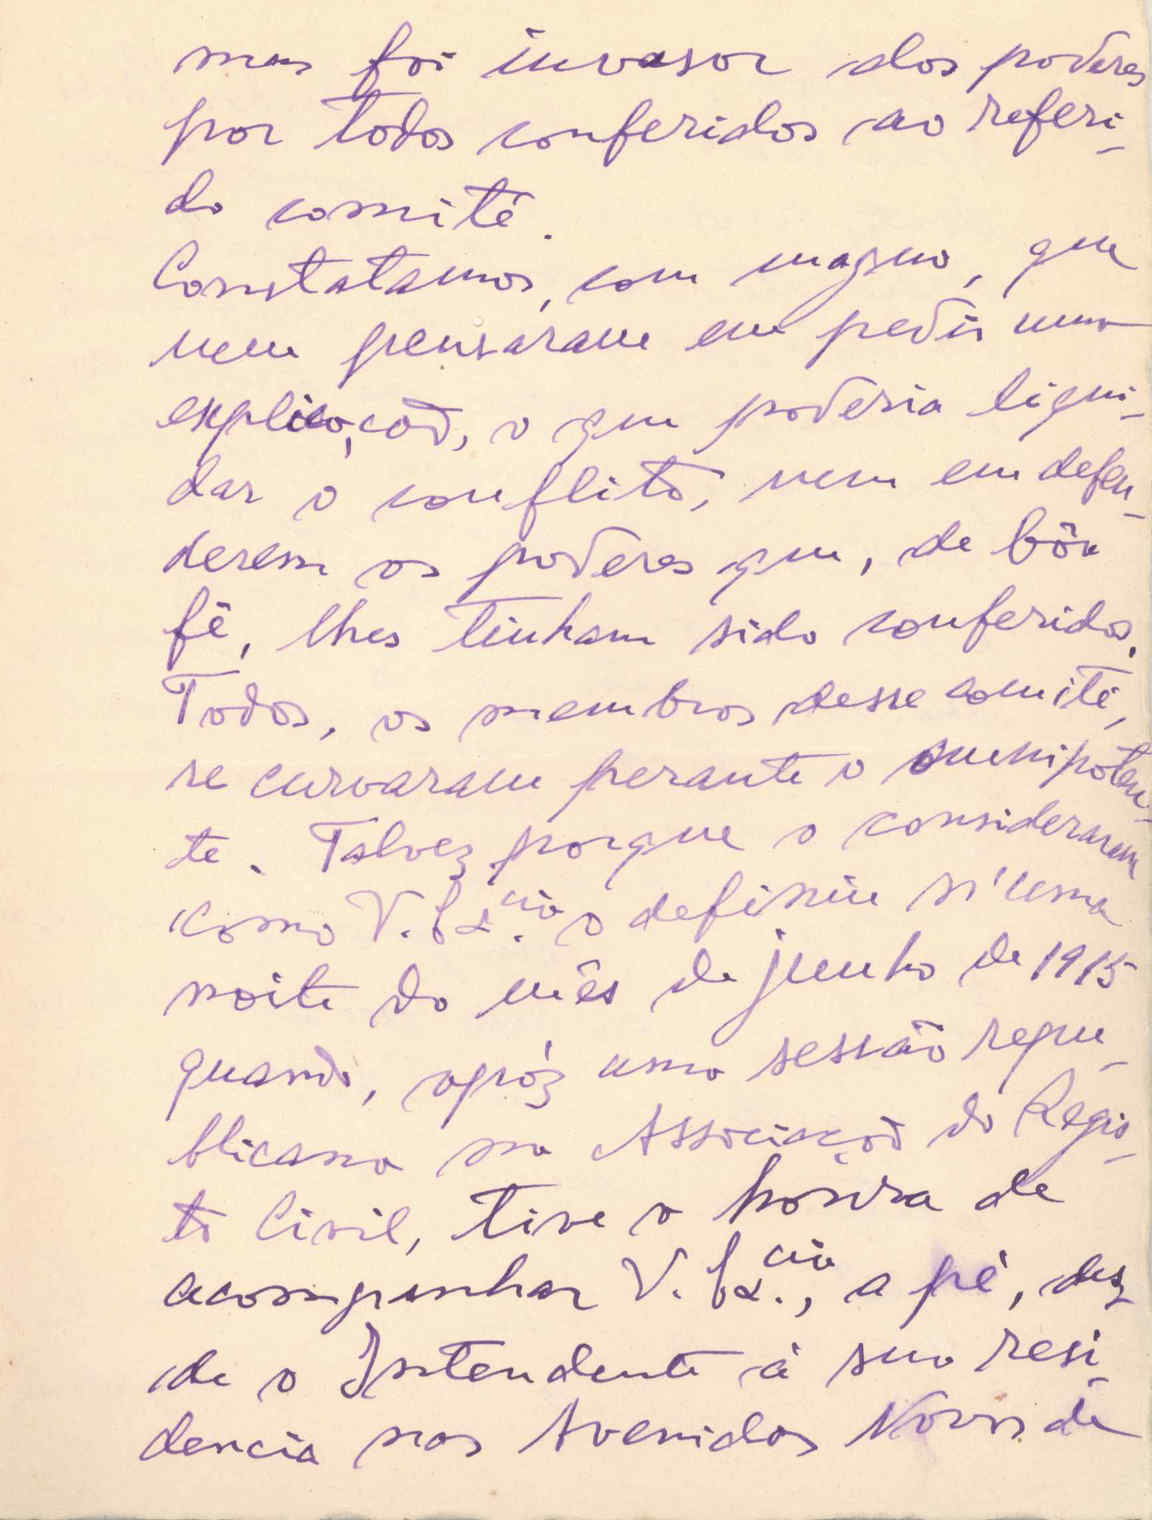 mas foi invasor dos poderes
por todos conferidos ao referi-
do comité.
Constatamos, com magno, que
nem pensaram em pedir uma
explicação, o que poderia liqui-
dar o conflito, nem em defen-
derem os poderes que, de bôa
fé, lhes tinham sido conferidos.
Todos, os membros desse comité,
se curvaram perante o omnipoten-
te. Talvez porque o consideraram
como V. Ex.cia o definiu n'uma
noite do mês de junho de 1915
quando, após uma sessão repu-
blicana na Associação do Regis-
to Civil, tive a honra de
acompanhar V. Ex.cia, a pé, des
de o Intendente á sua resi-
dencia nas Avenidas Novas. de